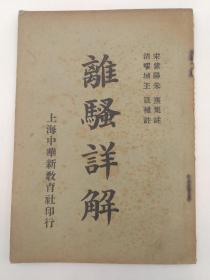 宋紫陽朱熹集註
清嘐城王箴補註
離騷詳解
上海中華新教育社印行